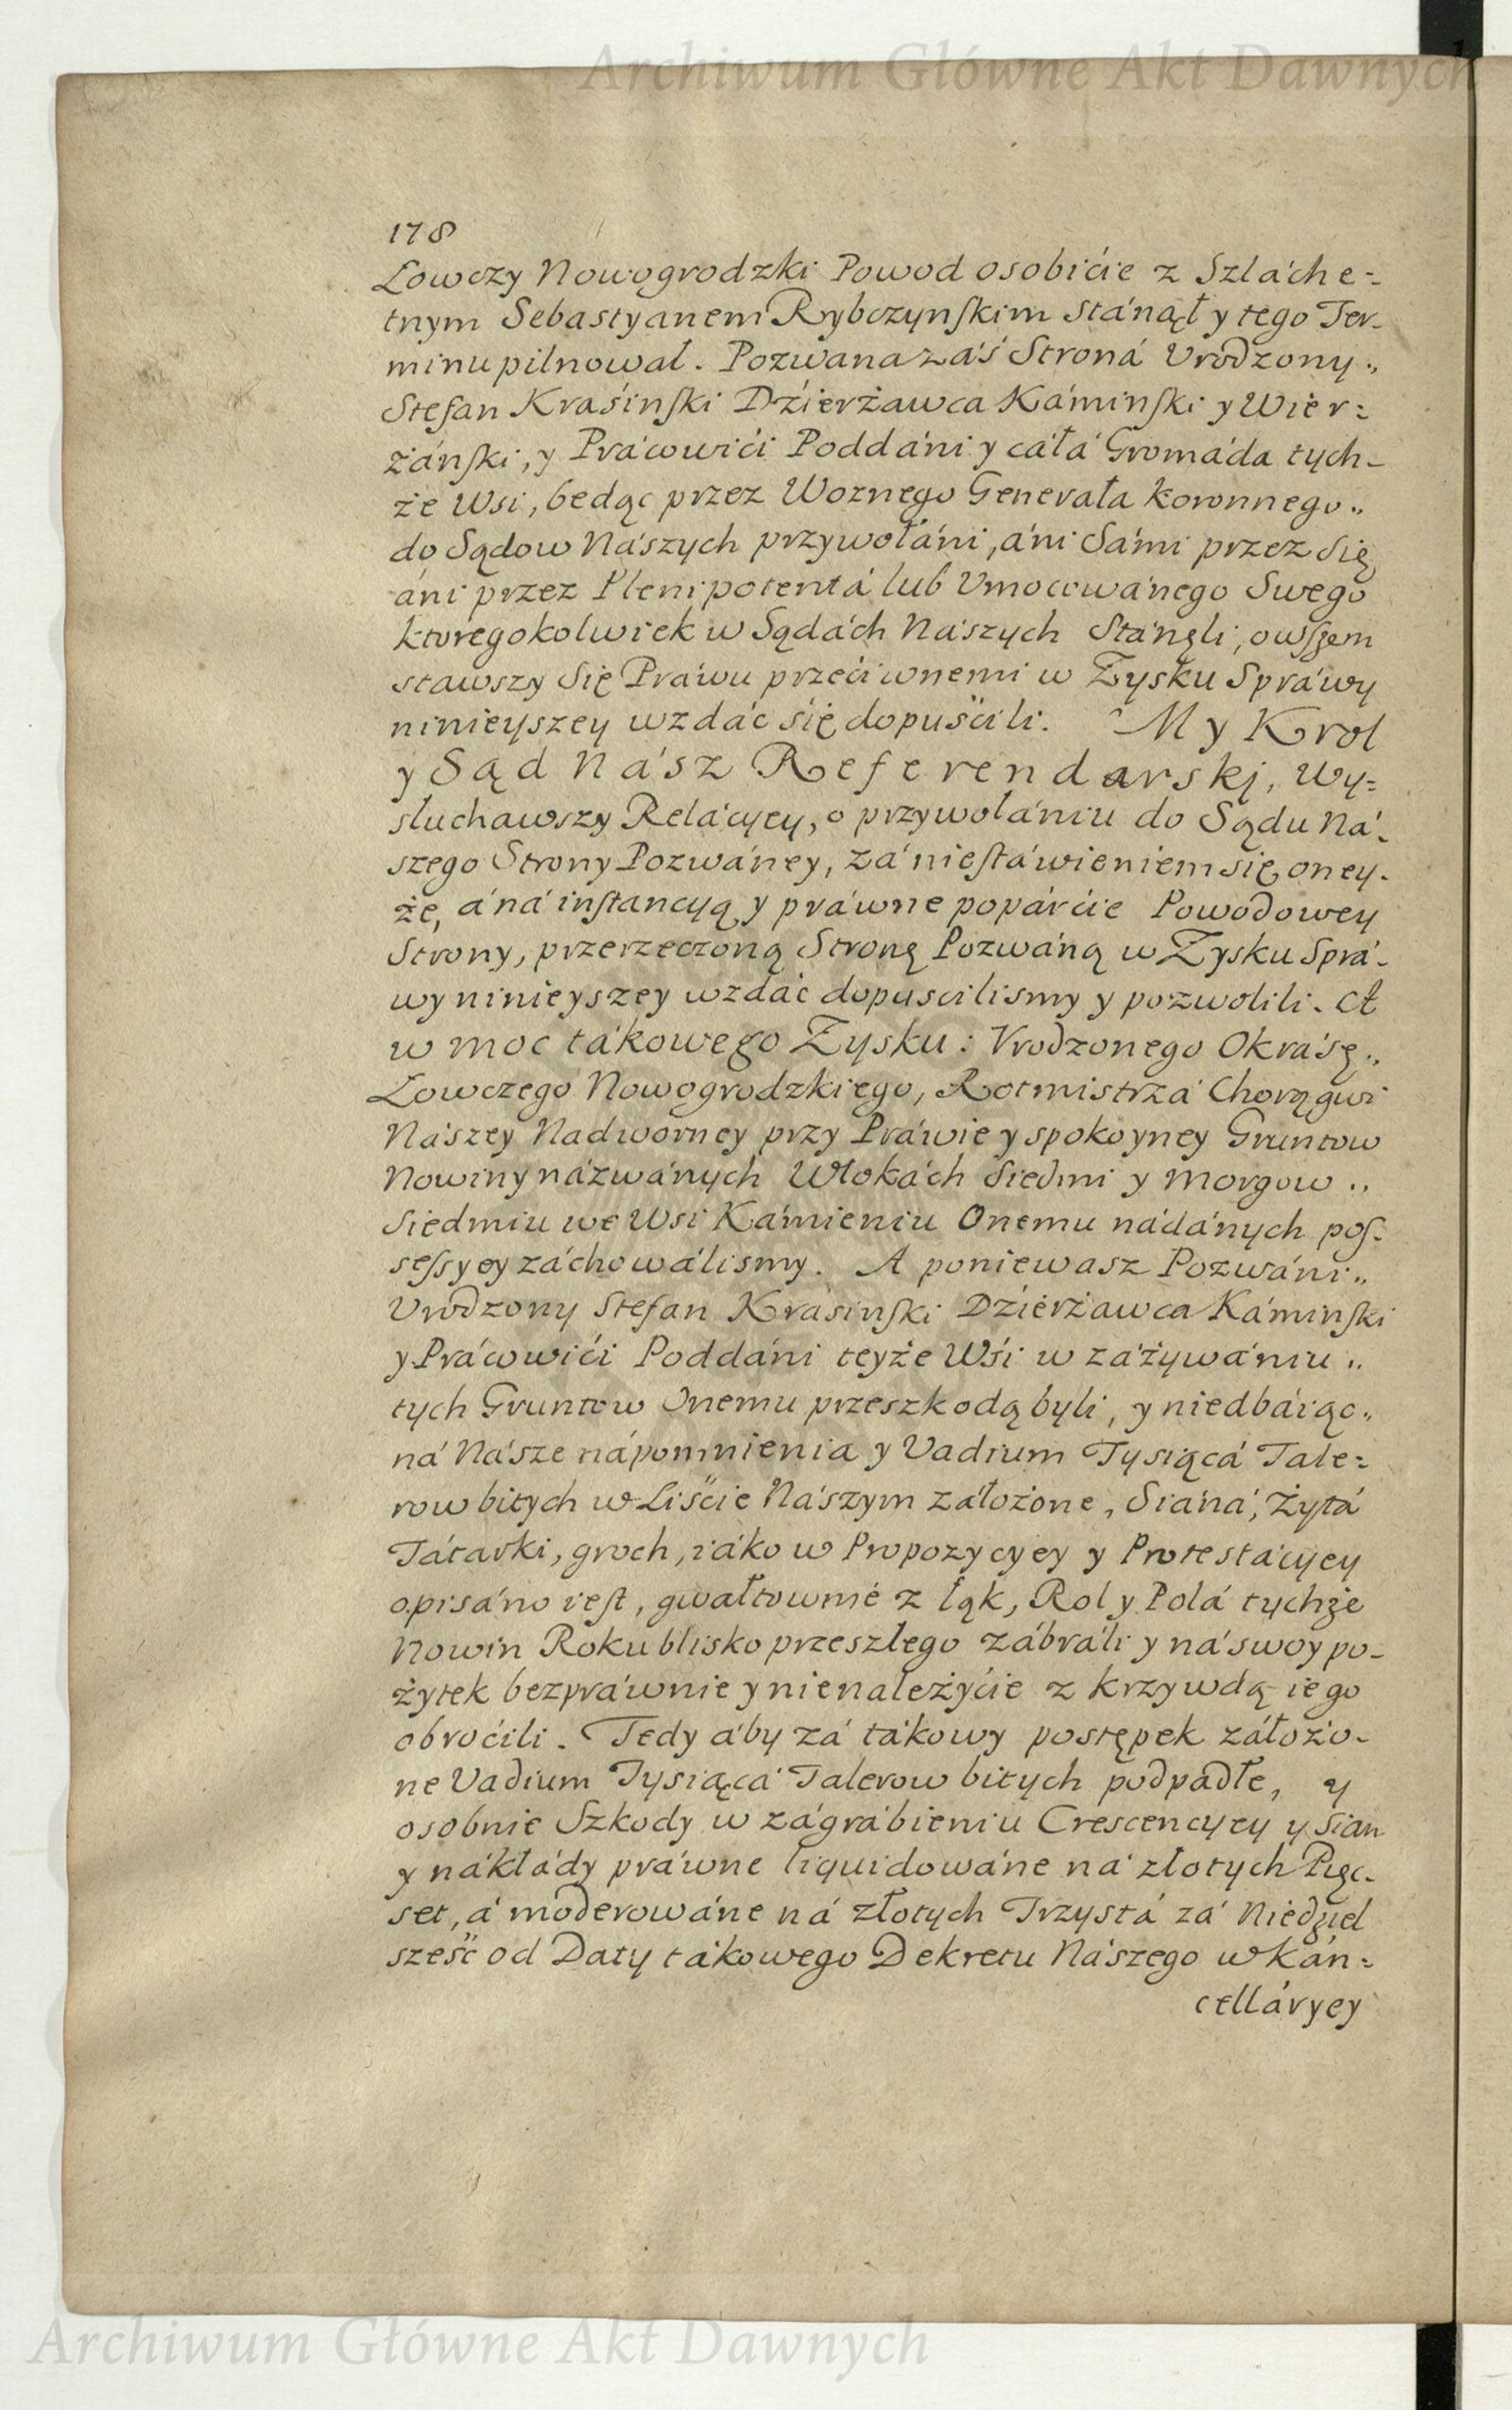 Archiwum Główne Akt Dawnych
178
Łowczy Nowogrodzki Powod osobićie z Szláche-
tnym Sebastyanem Rybczynskim stánął y tego Ter-
minu pilnował. Pozwana záś Stroná Vrodzony
Stefan Kraśinski Dzierżawca Káminski y Wier-
żánski, y Prácowići Poddáni y cáłá Gromáda tych-
że Wsi, będąc przez Woznego Generała Koronnego
do Sądow Nászych przywołáni, áni sámi przez się
áni przez Plenipotentá lub Vmocowánego Swego
ktoregokolwiek w Sądách Nászych stánęli, owszem
stawszy się Práwu przećiwnemi w Zysku Spráwy
ninieyszey wzdáć się dopuśćili. My Krol
y Sąd Nász Referendarski, Wy-
słuchawszy Relácyey, o przywołániu do Sądu Ná-
szego Strony Pozwáney, zá niestáwieniem się oney-
że, á ná instancyą y práwne popárćie Powodowey
Strony, przerzeczoną Stronę Pozwáną w Zysku Sprá-
wy ninieyszey wzdáć dopuscilismy y pozwolili. A
w moc tákowego Zysku: Vrodzonego Okrásę
Łowczego Nowogrodzkiego, Rotmistrzá Chorągwi
Nászey Nadworney przy Práwie y spokoyney Gruntow
Nowiny názwánych Włokách siedmi y morgow
siedmiu we Wsi Kámieniu Onemu nádánych pos-
sessyey záchowálismy. A poniewasz Pozwáni
Vrodzony Stefan Krásinski Dzierżawca Káminski
y Prácowići Poddáni teyże Wśi w záżywániu
tych Gruntow Onemu przeszkodą byli, y niedbáiąc
ná Násze nápomnienia y Vadium Tysiącá Tale-
row bitych w Liśćie Nászym záłożone, Siáná, Żytá
Tátarki, groch, iáko w Propozycyey y Protestácyey
opisáno iest, gwałtownie z łąk, Rol y Polá tychże
Nowin Roku blisko przeszłego zábráli y ná swoy po-
żytek bezpráwnie y nienależyćie z krzywdą iego
obroćili. Tedy áby zá tákowy postępek záłożo-
ne Vadium Tysiącá Talerow bitych podpadłe, y
osobnie Szkody w zágrábieniu Crescencyey y Sian
y nákłády práwne liquidowáne ná złotych Pięc-
set, á moderowáne ná złotych Trzystá zá Niedziel
sześć od Daty tákowego Dekretu Nászego w Kán-
celláryey
Archiwum Główne Akt Dawnych